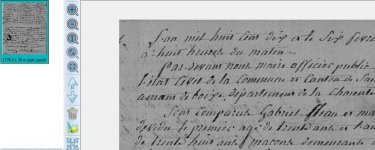 1778 01 30 m jean jacob
L'an mil huit cent dix et le Six fevri
à huit heures du matin.
Par devant nous maire officier public
l'état civil de la Commune et Canton de Sai
amant de boixe, département de la Charente
Sont comparus Gabriel Jean et ma
le premier agé de trente ans et
de trente huit ans maçons demeurants